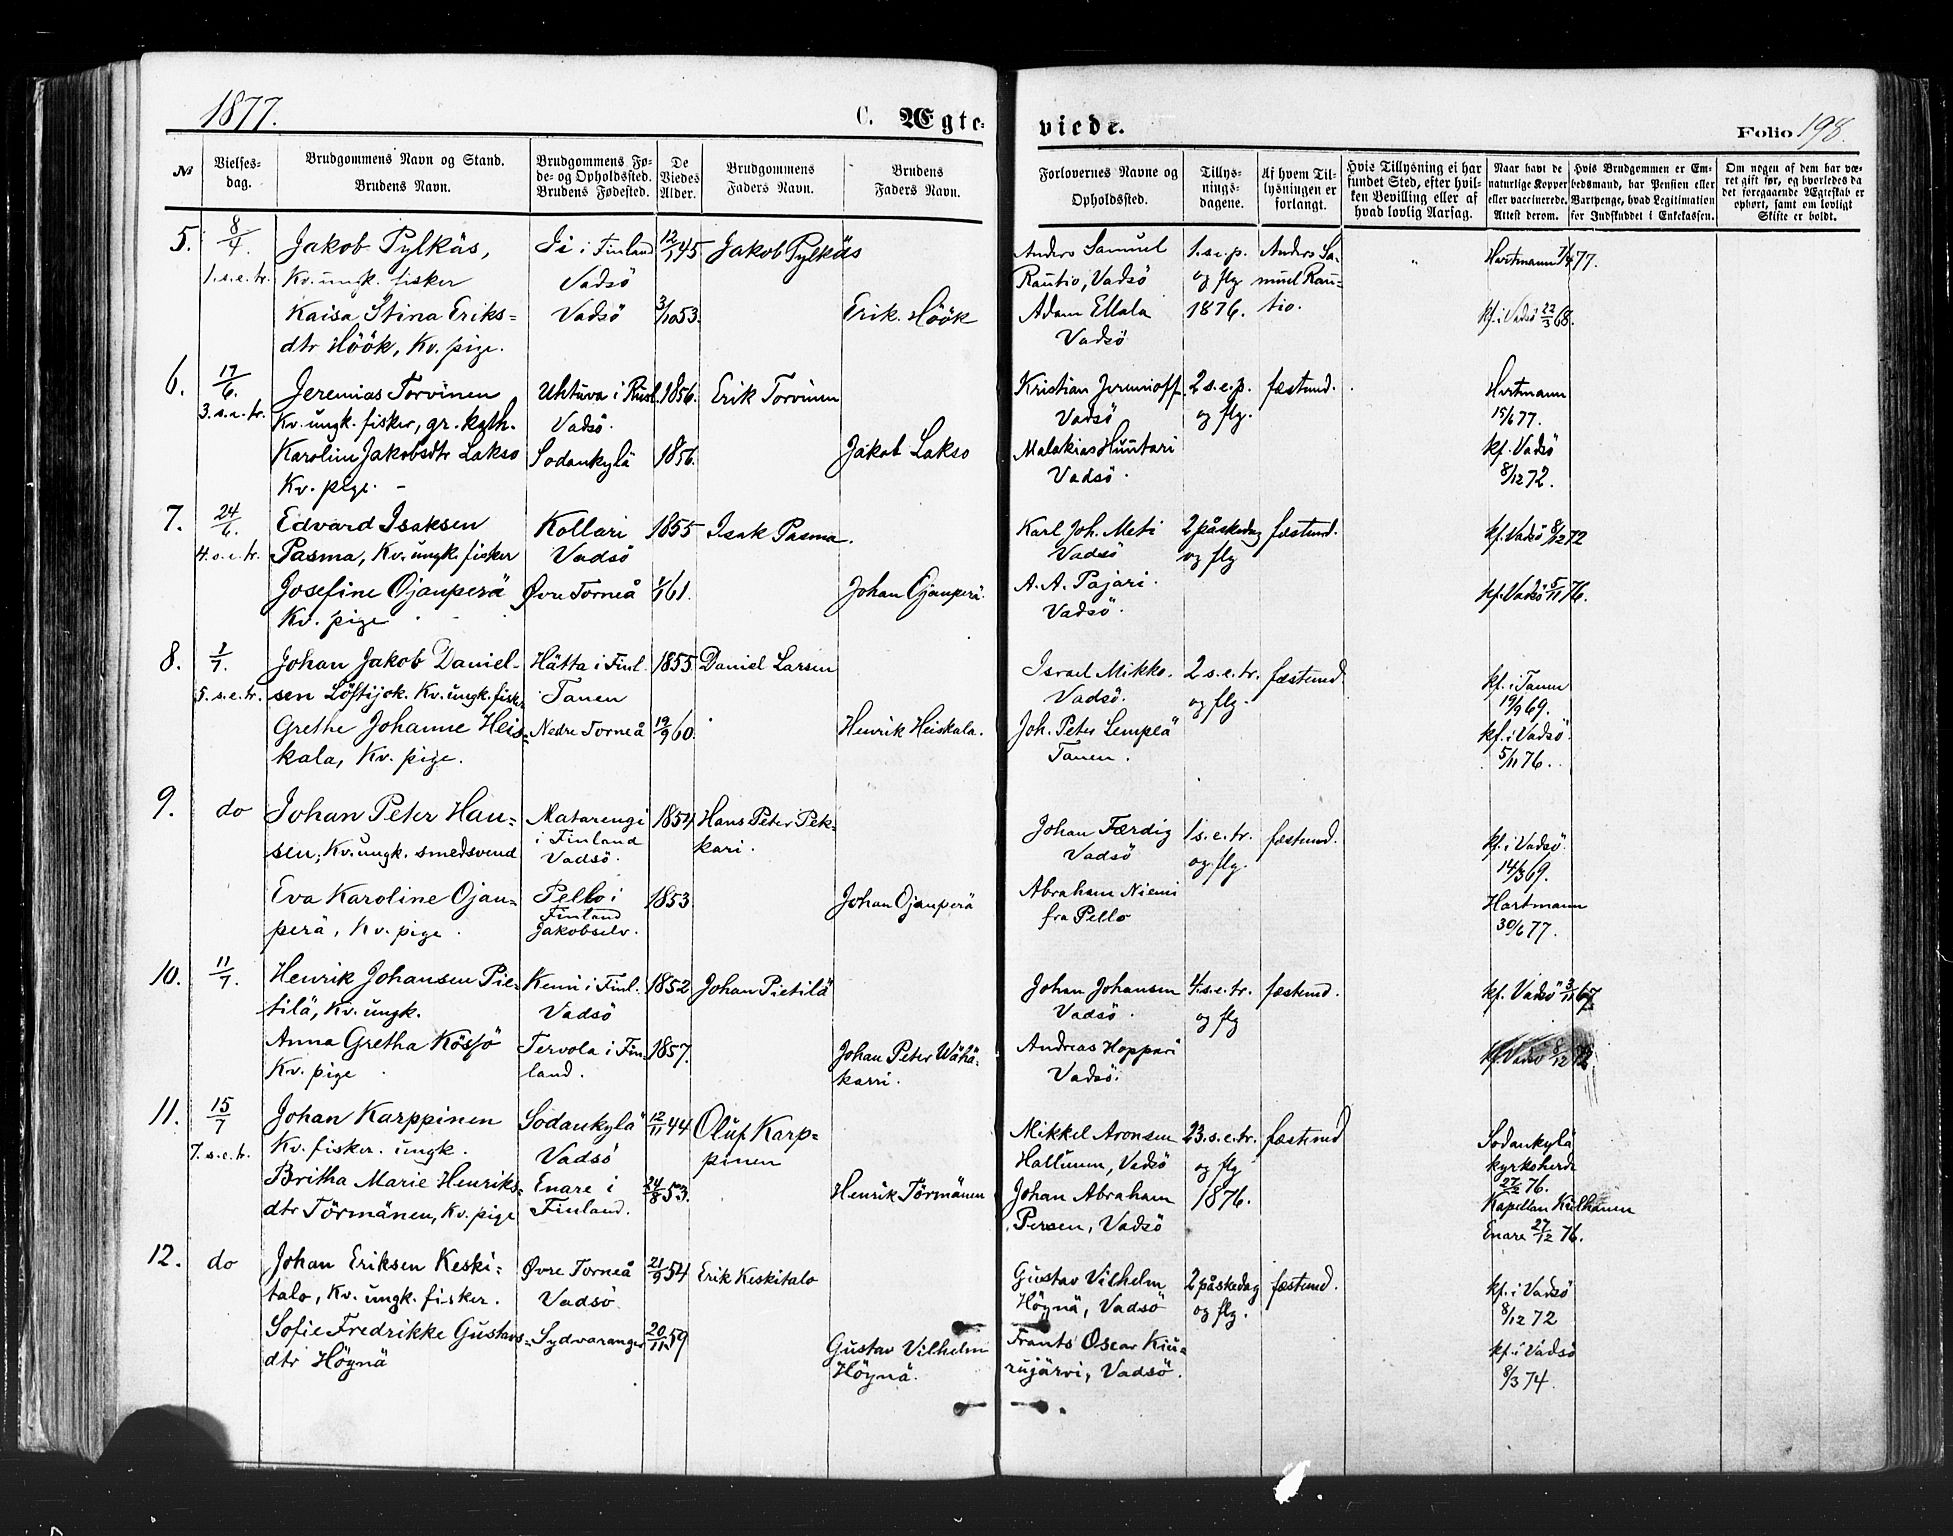 1877.
C. Ægte-
viede.
Folio 198.
№
Vielses-
dag.
Brudgommens Navn og Stand.
Brudens Navn.
Brudgommens Fø-
de- og Opholdssted.
Brudens Fødested.
De
Viedes
Alder.
Brudgommens
Faders Navn.
Brudens
Faders Navn.
Forlovernes Navne og
Opholdssted.
Tillys-
nings-
dagene.
Af hvem Til-
lysningen er
forlangt.
Hvis Tillysning ei har
fundet Sted, efter hvil-
ken Bevilling eller af
hvad lovlig Aarsag.
Naar havt de
naturlige Kopper
eller vaccinerede.
Attest derom.
Hvis Brudgommen er Em-
bedsmand, har Pension eller
Vartpenge, hvad Legitimation
for Indskuddet i Enkekassen.
Om nogen af dem har væ-
ret gift før, og hvorledes da
det foregaaende Ægteskab er
ophørt, samt om lovligt
Skifte er holdt.
5.
8/4.
1.s.e.tr.
Jakob Pylkäs,
Kv. ungk. fisker
Kaisa Stina Eriks=
dtr Höök, Kv. pige.
Ii i Finland
Vadsö
Vadsö
12/1 45
3/10 53.
Jakob Pylkäs
Erik Höök
Anders Samuel
Rautio, Vadsö
Adam Ellala
Vadsö
1.s.e.p.
og flg
1876.
Anders Sa-
muel Rau=
tio.
"
Hartmann 7/4 77.
kf. i Vadsö 22/3 68.
6.
17/6.
3.s.e.tr.
Jeremias Torvinen
Kv. ungk. fisker, gr. kath.
Karolin Jakobsdtr Lakso
Kv. pige. -
Uhtuva i Rusl.
Vadsö.
Sodankylä
1856.
1856.
Erik Torvinen
Jakob Lakso
Kristian Jeremioff
Vadsö
Malakias Huntari
Vadsö.
2 s.e.p.
og flg.
fæstmd.
Hartmann
15/6 77.
kf. Vadsö
8/12 72.
7.
24/6.
4.s.e.tr.
Edvard Isaksen
Pasma, Kv. ungk. fisker
Josefine Ojanperä
Kv. pige
Kollari
Vadsö
Øvre Torneå
1855
61.
Isak Pasma.
Johan Ojanperä.
Karl Joh. Meti
Vadsö
A. A. Pajari.
Vadsö.
2 påskedag
og flg
fæstmd.
kf. Vadsö 8/12 72
kf. Vadsö 5/11 76.
8.
7.
5.s.e.tr.
Johan Jakob Daniel-
sen Löftijok. Kv. ungk. fisker
Grethe Johanne Heis=
kala, Kv. pige.
Hätta i Finl.
Tanen
Nedre Torneå
1855
19/9 60.
Daniel Larsen
Henrik Heiskala.
Israel Mikko.
Vadsö.
Joh. Peter Lempeä
Tanen.
2 s.e.tr.
og flg.
fæstmd.
kf. i Tanen
19/9 69.
kf. i Vadsö.
5/11 76.
9.
do
Johan Peter Han=
sen, Kv. ungk. smedsvend
Eva Karoline Ojan=
perä, Kv. pige.
Matarengi
i Finland
Vadsö.
Pello i
Finland
Jakobselv.
1854
1853
Hans Peter Pek=
kari.
Johan Ojanperä
Johan Færdig
Vadsö
Abraham Niemi
fra Pello
1 s.e.tr.
og flg.
fæstmd.
kf. i Vadsö.
14/3 69.
Hartmann
30/6 77.
10.
11/7.
Henrik Johansen Pie=
tilä, Kv. ungk.
Anna Gretha Kössö
Kv. pige
Kemi i Finl.
Vadsö
Tervola i Fin
land.
1852
1857.
Johan Pietilä
Johan Peter Wähä=
karri.
Johan Johansen
Vadsö.
Andreas Hoppari
Vadsö.
4.s.e.tr.
og flg
fæstmd.
kf. Vadsö 3/11 67
kf. Vadsö 8/12 72
11.
15/7
7.s.e.tr.
Johan Karppinen
Kv. fisker. ungk.
Britha Marie Henriks-
dtr Törmänen, Kv. pige
Sodankylä
Vadsö
Enare i
Finland.
12/11 44
24/8 53.
Oluf Karp=
pinen
Henrik Törmänen
Mikkel Aronsen
Hallunen, Vadsö
Johan Abraham
Persen, Vadsö
23.s.e.tr.
og flg
1876.
fæstmd
Sodankylä
kyrkoherde
27/2 76.
Kapellan
Enare 27/12 76.
12.
do
Johan Eriksen Keski=
talo, Kv. ungk. fisker.
Sofie Fredrikke Gustavs=
dtr Höynä
Øvre Torneå
Vadsö
Sydvaranger
21/9 54
20/11 59
Erik Keskitalo
Gustav Vilhelm
Höynä.
Gustav Vilhelm
Höynä, Vadsö
Frants Oscar Kiu=
rujärvi, Vadsö.
2 påskedag
og flg.
fæstmd.
kf. i Vadsö
8/12 72
kf. i Vadsö
8/3 74.